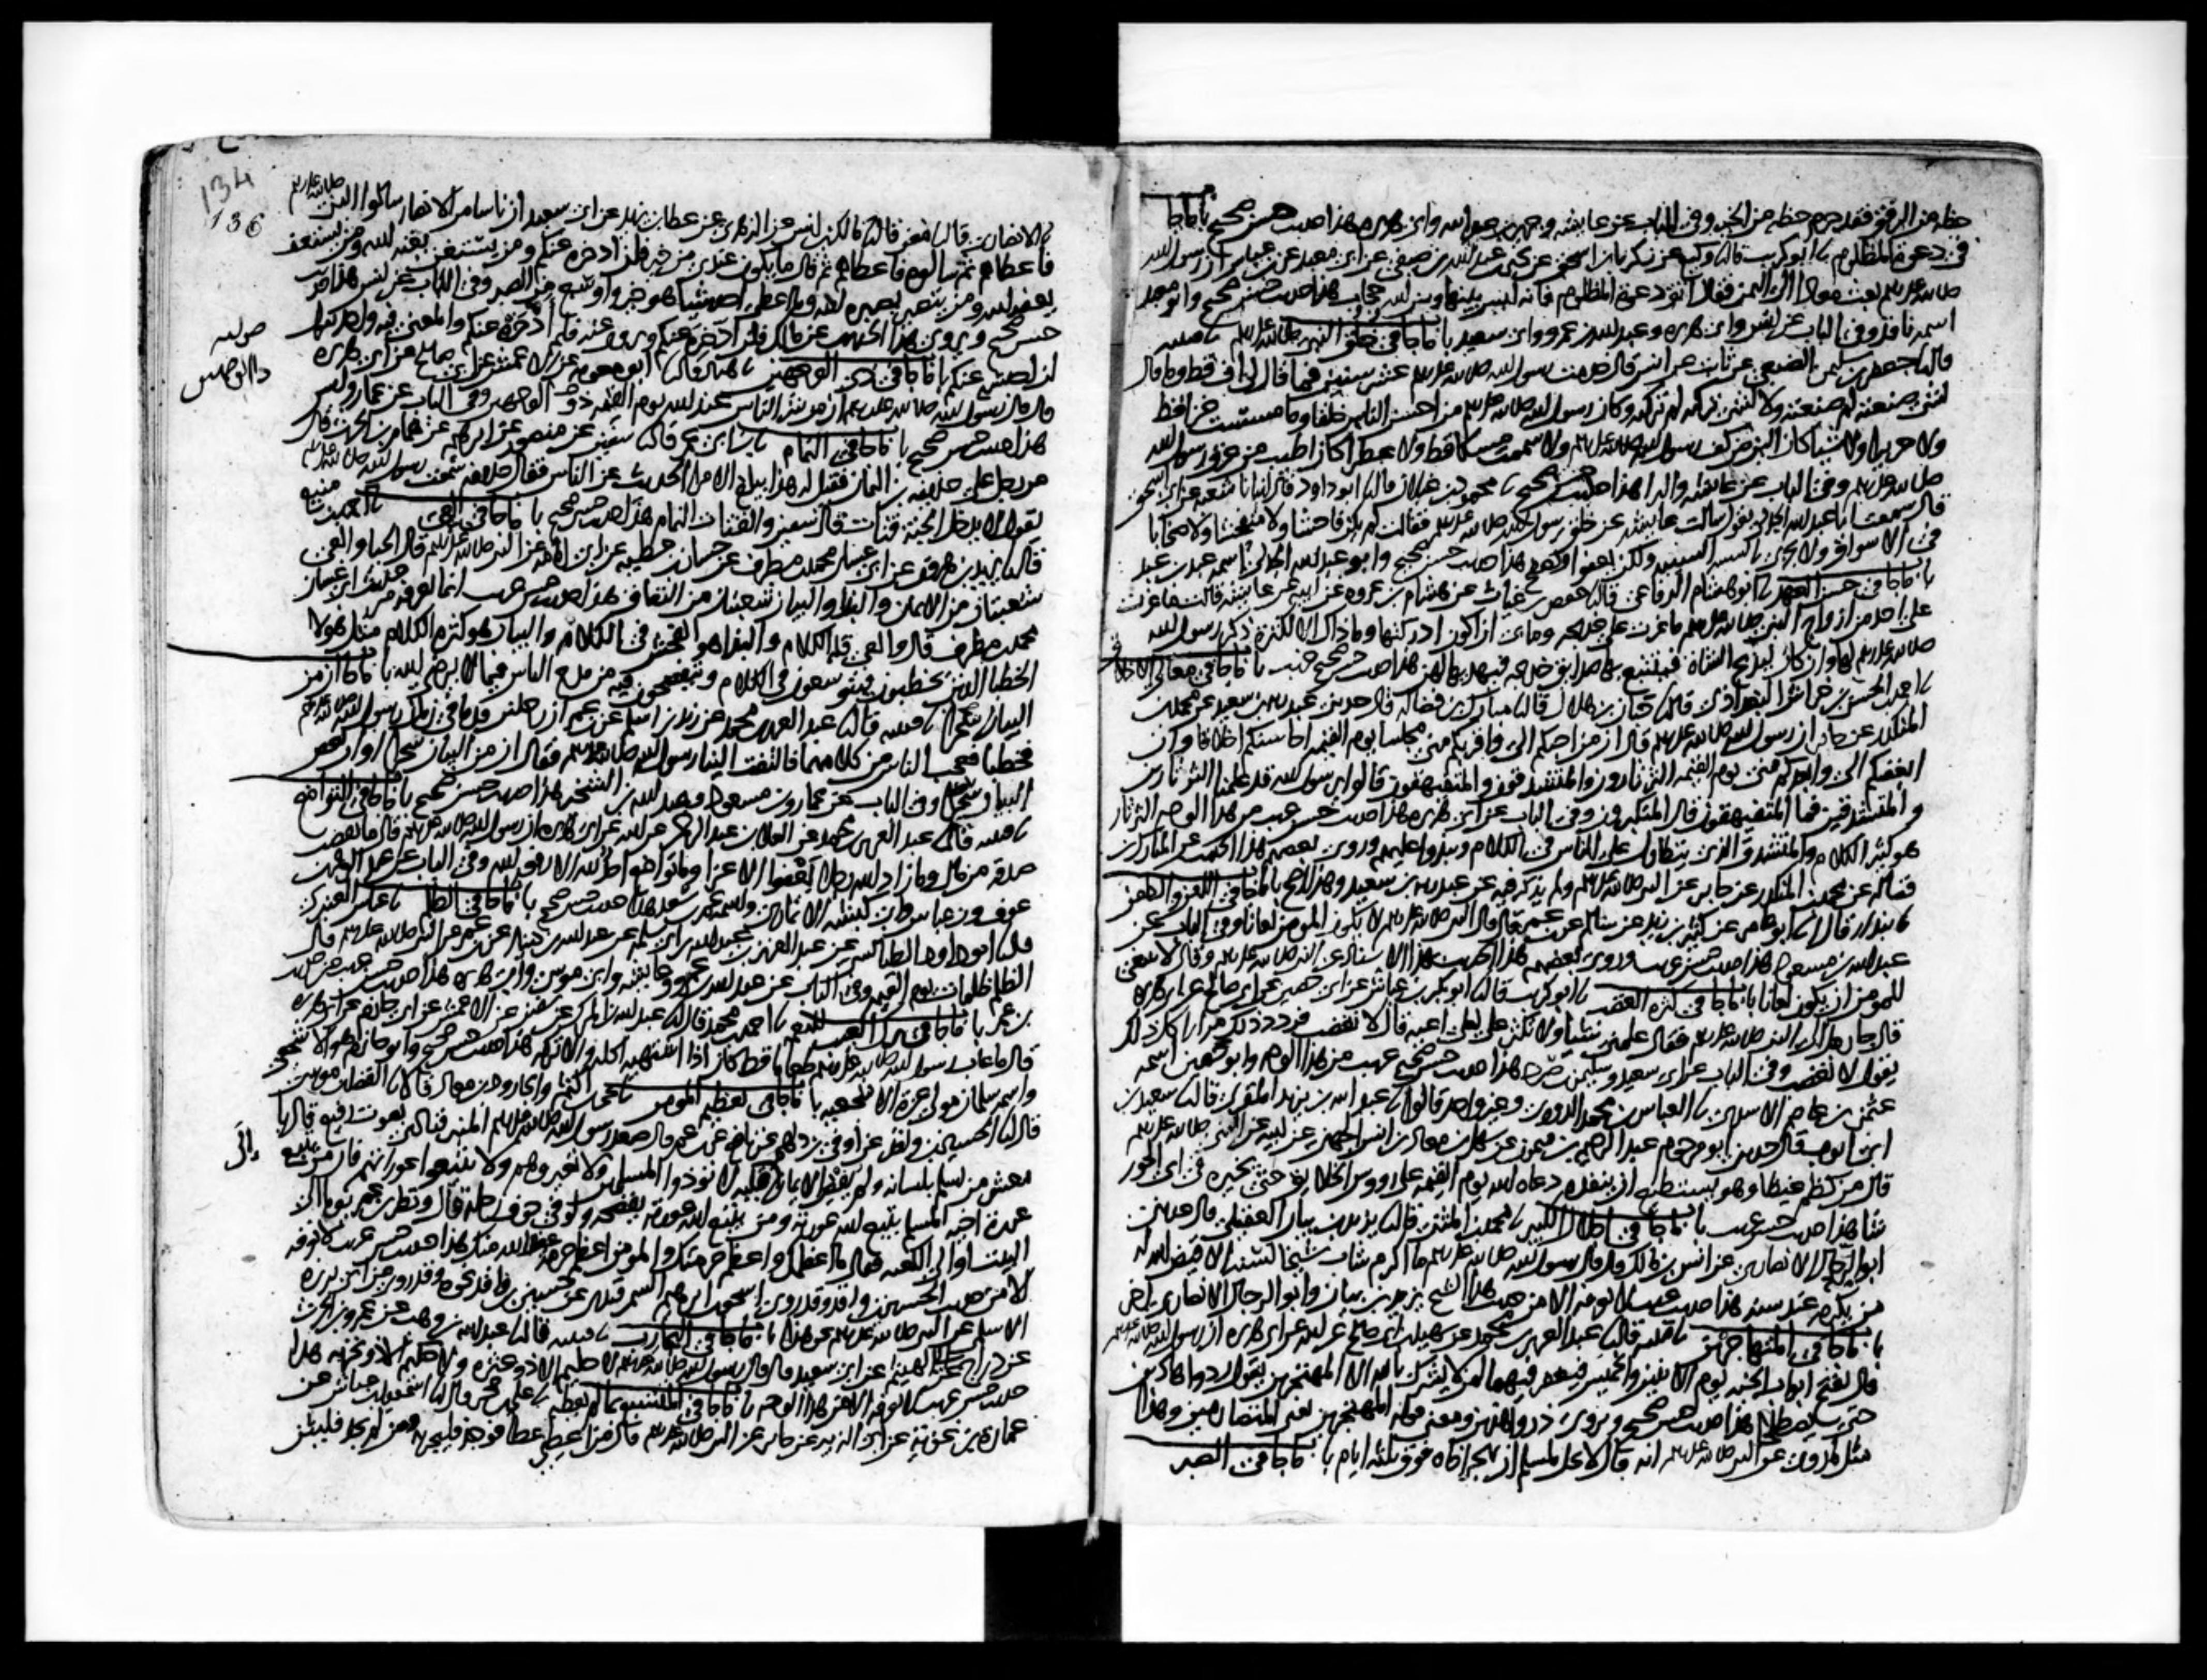 حظه من الرفق فقد حرم حظه من الخير وفى الباب عن عايشة وجرير بن عبد الله وابى هريره هذا حديث حسن صحيح باب ما جا
فى دعوة المظلوم نا ابو كريب نا وكيع عن زكريا بن اسحق عن يحيى بن عبد الله بن صيفى عن ابى معبد عن ابن عباس ان رسول الله
صلى الله عليه وسلم بعث معاذا الى اليمن فقال اتق دعوة المظلوم فانه ليس بينها وبين الله حجاب هذا حديث حسن صحيح وابو معبد
اسمه نافذ وفى الباب عن انس وابى هريره وعبد الله بن عمرو وابى سعيد باب ما جا فى خلق النبى صلى الله عليه وسلم نا قتيبه
قال نا جعفر بن سليمن الضبعى عن ثابت عن انس قال خدمت رسول الله صلى الله عليه وسلم عشر سنين فما قال لى اف قط وما قال
لشى صنعته لم صنعته ولا لشى تركته لم تركته وكان رسول الله صلى الله عليه وسلم من احسن الناس خلقا وما مسست خزا قط
ولا حريرا ولا شيا كان الين من كف رسول الله صلى الله عليه وسلم ولا شممت مسكا قط ولا عطرا كان اطيب من عرق رسول الله
صلى الله عليه وسلم وفى الباب عن عايشه والبرا هذا حديث حسن صحيح نا محمود بن غيلان قال نا ابو داود قال انبانا شعبه عن ابى اسحق
قال سمعت ابا عبد الله الجدلى يقول سالت عايشه عن خلق رسول الله صلى الله عليه وسلم فقالت لم يكن فاحشا ولا متفحشا ولا صخابا
فى الاسواق ولا يجزى بالسيه السيه ولكن يعفو ويصفح هذا حديث حسن صحيح وابو عبد الله الجدلى اسمه عبد بن عبد
باب ما جا فى حسن العهد نا ابو هشام الرفاعى قال نا حفص بن غياث عن هشام بن عروه عن ابيه عن عايشه قالت ما غرت
على احد من ازواج النبى صلى الله عليه وسلم ما غرت على خديجه وما بى ان اكون ادركتها وما ذاك الا لكثرة ذكر رسول الله
صلى الله عليه وسلم لها وان كان ليذبح الشاة فيتتبع بها صدايق خديجه فيهديها لهن هذا حديث حسن صحيح غريب باب ما جا فى معالى الاخلاق
نا احمد بن الحسن بن خراش البغدادى قال نا حبان بن هلال قال نا مبارك بن فضاله قال حدثنى عبد ربه بن سعيد عن محمد بن
المنكدر عن جابر ان رسول الله صلى الله عليه وسلم قال ان من احبكم الى واقربكم منى مجلسا يوم القيمه احاسنكم اخلاقا وان
ابغضكم الى وابعدكم منى يوم القيمه الثرثارون والمتشدقون والمتفيهقون قالوا يرسول الله قد علمنا الثرثارين
والمتشدقين فما المتفيهقون قال المتكبرون وفى الباب عن ابى هريره هذا حديث حسن غريب من هذا الوجه الثرثار
هو كثير الكلام والمتشدق الذى يتطاول على الناس فى الكلام ويبدوا عليهم وروى بعضهم هذا الحديث عن المبارك بن
فضاله عن محمد بن المنكدر عن جابر عن النبى صلى الله عليه وسلم ولم يذكر فيه عن عبد ربه بن سعيد وهذا اصح باب ما جا فى اللعن والطعن
نا بندار قال نا ابو عامر عن كثير بن زيد عن سالم عن ابن عمر قال قال النبى صلى الله عليه وسلم لا يكون المومن لعانا وفى الباب عن
عبد الله بن مسعود هذا حديث حسن غريب وروى بعضهم هذا الحديث بهذا الاسناد عن النبى صلى الله عليه وسلم وقال لا ينبغى
للمومن ان يكون لعانا باب ما جا فى كثرة الغضب نا ابو كريب قال نا ابو بكر بن عياش عن ابى حصين عن ابى صالح عن ابى هريره
قال جا رجل الى النبى صلى الله عليه وسلم فقال علمنى شيا ولا تكثر على لعلى اعيه قال لا تغضب فردد ذلك مرارا كل ذلك
يقول لا تغضب وفى الباب عن ابى سعيد وسليمن بن صرد هذا حديث حسن صحيح غريب من هذا الوجه وابو حصين اسمه
عثمن بن عاصم الاسدى نا العباس بن محمد الدورى وغير واحد قالوا نا عبد الله بن يزيد المقرى قال نا سعيد بن
ابى ايوب قال حدثنى ابو مرحوم عبد الرحيم بن ميمون عن سهل بن معاذ بن انس الجهنى عن ابيه عن النبى صلى الله عليه وسلم
قال من كظم غيظا وهو يستطيع ان ينفذه دعاه الله يوم القيمه على رووس الخلايق حتى يخيره فى اى الحور
شا هذا حديث حسن غريب باب ما جا فى اجلال الكبير نا محمد بن المثنى قال نا يزيد بن بيان العقيلى قال حدثنى
ابو الرحال الانصارى عن انس بن مالك قال قال رسول الله صلى الله عليه وسلم ما اكرم شاب شيخا لسنه الا قيض الله له
من يكرمه عند سنه هذا حديث غريب لا نعرفه الا من حديث هذا الشيخ يزيد بن بيان وابو الرجال الانصارى اخر
باب ما جا فى المتهاجرين نا قتيبه قال نا عبد العزيز بن محمد عن سهيل بن ابى صالح عن ابيه عن ابى هريره ان رسول الله صلى الله عليه وسلم
قال تفتح ابواب الجنه يوم الاثنين والخميس فيغفر فيهما لمن لا يشرك بالله الا المهتجرين يقول ردوا هذين
حتى يصطلحا هذا حديث حسن صحيح ويروى ذروا هذين ومعنى قوله المهتجرين يعنى المتصارمين وهذا
مثل ما روى عن النبى صلى الله عليه وسلم انه قال لا يحل لمسلم ان يهجر اخاه فوق ثلثه ايام باب ما جا فى الصبر
134
136
نا الانصارى قال نا معن قال نا مالك بن انس عن الزهرى عن عطا بن يزيد عن ابى سعيد ان ناسا من الانصار سالوا النبى صلى الله عليه وسلم
فاعطاهم ثم سالوه فاعطاهم ثم قال ما يكون عندى من خير فلن ادخره عنكم ومن يستغن يغنه الله ومن يستعفف
يعفه الله ومن يتصبر يصبره الله وما اعطى احد شيا هو خير واوسع من الصبر وفى الباب عن انس هذا حديث
حسن صحيح ويروى هذا الحديث عن مالك فلن اذخره عنكم ويروى عنه فلم ادخره عنكم والمعنى فيه واحد يقول
لن احبسه عنكم باب ما جا فى ذى الوجهين نا هناد قال نا ابو معويه عن الاعمش عن ابى صالح عن ابى هريره
قال قال رسول الله صلى الله عليه وسلم ان من شر الناس عند الله يوم القيمه ذو الوجهين وفى الباب عن عمار وانس
هذا حديث حسن صحيح باب ما جا فى النمام نا ابن ابى عمر قال نا سفين عن منصور عن ابراهيم عن همام بن الحرث قال
مر رجل على حذيفه بن اليمان فقيل له هذا يبلغ الامرا الحديث عن الناس فقال حذيفه سمعت رسول الله صلى الله عليه وسلم
يقول لا يدخل الجنه قتات قال سفين والقتات النمام هذا حديث حسن صحيح باب ما جا فى العى نا احمد بن منيع
قال نا يزيد بن هرون عن ابى غسان محمد بن مطرف عن حسان بن عطيه عن ابى امامه عن النبى صلى الله عليه وسلم قال الحيا والعى
شعبتان من الايمان والبذا والبيان شعبتان من النفاق هذا حديث حسن غريب انما نعرفه من حديث ابى غسان
محمد بن مطرف قال والعى قله الكلام والبذا هو الفحش فى الكلام والبيان هو كثره الكلام مثل هولا
الخطبا الذين يخطبون فيتوسعون فى الكلام ويتفصحون فيه من مدح الناس فيما لا يرضى الله باب ما جا ان من
البيان سحرا نا قتيبه قال نا عبد العزيز بن محمد عن زيد بن اسلم عن ابن عمر ان رجلين قدما فى زمان رسول الله صلى الله عليه وسلم
فخطبا فعجب الناس من كلامهما فالتفت الينا رسول الله صلى الله عليه وسلم فقال ان من البيان سحرا او ان بعض
البيان سحر وفى الباب عن عمار وبن مسعود وعبد الله بن الشخير هذا حديث حسن صحيح باب ما جا فى التواضع
نا قتيبه قال نا عبد العزيز بن محمد عن العلا بن عبد الرحمن عن ابيه عن ابى هريره ان رسول الله صلى الله عليه وسلم قال ما نقصت
صدقه من مال وما زاد الله رجلا بعفو الا عزا وما تواضع احد لله الا رفعه الله وفى الباب عن عبد الرحمن بن
عوف وبن عباس وابى كبشه الانمارى واسمه عمر بن سعد هذا حديث حسن صحيح باب ما جا فى الظلم نا عباس العنبرى
قال نا ابو داود الطيالسى عن عبد العزيز بن عبد الله بن ابى سلمه عن عبد الله بن دينار عن ابن عمر عن النبى صلى الله عليه وسلم قال
الظلم ظلمات يوم القيمه وفى الباب عن عبد الله بن عمرو وعايشه وابى موسى وابى هريره هذا حديث حسن غريب من حديث
بن عمر باب ما جا فى ترك العيب للنعمه نا احمد بن محمد قال نا عبد الله بن المبارك عن سفين عن الاعمش عن ابى حازم عن ابى هريره
قال ما عاب رسول الله صلى الله عليه وسلم طعاما قط كان اذا اشتهاه اكله والا تركه هذا حديث حسن صحيح وابو حازم هو الاشجعى
واسمه سلمان مولى عزه الاشجعيه باب ما جا فى تعظيم المومن نا يحيى بن اكثم والجارود بن معاذ قالا نا الفضل بن موسى
قال نا الحسين بن واقد عن اوفى بن دلهم عن نافع عن ابن عمر قال صعد رسول الله صلى الله عليه وسلم المنبر فنادى بصوت رفيع قال يا
معشر من اسلم بلسانه ولم يفض الايمان الى قلبه لا توذوا المسلمين ولا تعيروهم ولا تتبعوا عوراتهم فان من تتبع
عورة اخيه المسلم يتتبع الله عورته ومن يتتبع الله عورته يفضحه ولو فى جوف رحله قال ونظر بن عمر يوما الى
البيت او الى الكعبه فقال ما اعظمك واعظم حرمتك والمومن اعظم حرمة عند الله منك هذا حديث حسن غريب لا نعرفه
الا من حديث الحسين بن واقد وقد روى اسحق بن ابراهيم السمرقندى عن حسين بن واقد نحوه وقد روى عن ابى برزه
الاسلمى عن النبى صلى الله عليه وسلم نحو هذا باب ما جا فى التجارب نا قتيبه قال نا عبد الله بن وهب عن عمرو بن الحرث
عن دراج عن ابى الهيثم عن ابى سعيد قال قال رسول الله صلى الله عليه وسلم لا حليم الا ذو عثره ولا حكيم الا ذو تجربه هذا
حديث حسن غريب لا نعرفه الا من هذا الوجه باب ما جا فى المتشبع بما لم يعطه نا على بن حجر قال نا اسمعيل بن عياش عن
عماره بن غزيه عن ابى الزبير عن جابر عن النبى صلى الله عليه وسلم قال من اعطى عطا فوجد فليجز به ومن لم يجد فليثن
الى